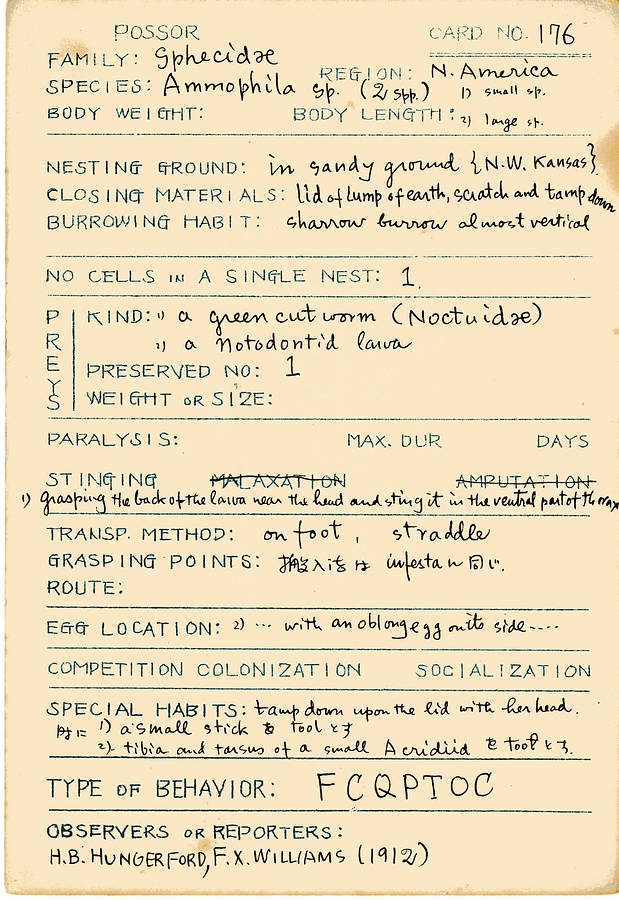 POSSOR CARD NO. 176
FAMILY: Sphecidæ
REGION: N. America
SPECIES: Ammophila sp. (2 spp.) 1) small sp.
BODY WEIGHT: BODY LENGTH: 2) large sp.
NESTING GROUND: in sandy ground {N.W. Kansas}
CLOSING MATERIALS: lid of lump of earth, scratch and tamp down
BURROWING HABIT: sharrow burrow almost vertical
NO CELLS IN A SINGLE NEST: 1.
PREYS
KIND: 1) a green cutworm (Noctuidæ)
2) a Notodontid larva
PRESERVED NO: 1
WEIGHT OR SIZE:
PARALYSIS: MAX. DUR DAYS
STINGING MALAXATION AMPUTATION
1) grasping the back of the larva near the head and sting it in the ventral part of th
TRANSP. METHOD: on foot, straddle
GRASPING POINTS: 搬入法は infesta と同じ.
ROUTE:
EGG LOCATION: 2) ... with an oblong egg onits side ....
COMPETITION COLONIZATION SOCIALIZATION
SPECIAL HABITS: tamp down upon the lid with her head.
時に 1) a small stick を tool とす
2) tibia and tarsus of a small Acridiid を tool とす.
TYPE OF BEHAVIOR: FCQPTOC
OBSERVERS OR REPORTERS:
H.B. HUNGERFORD, F.X. WILLIAMS (1912)